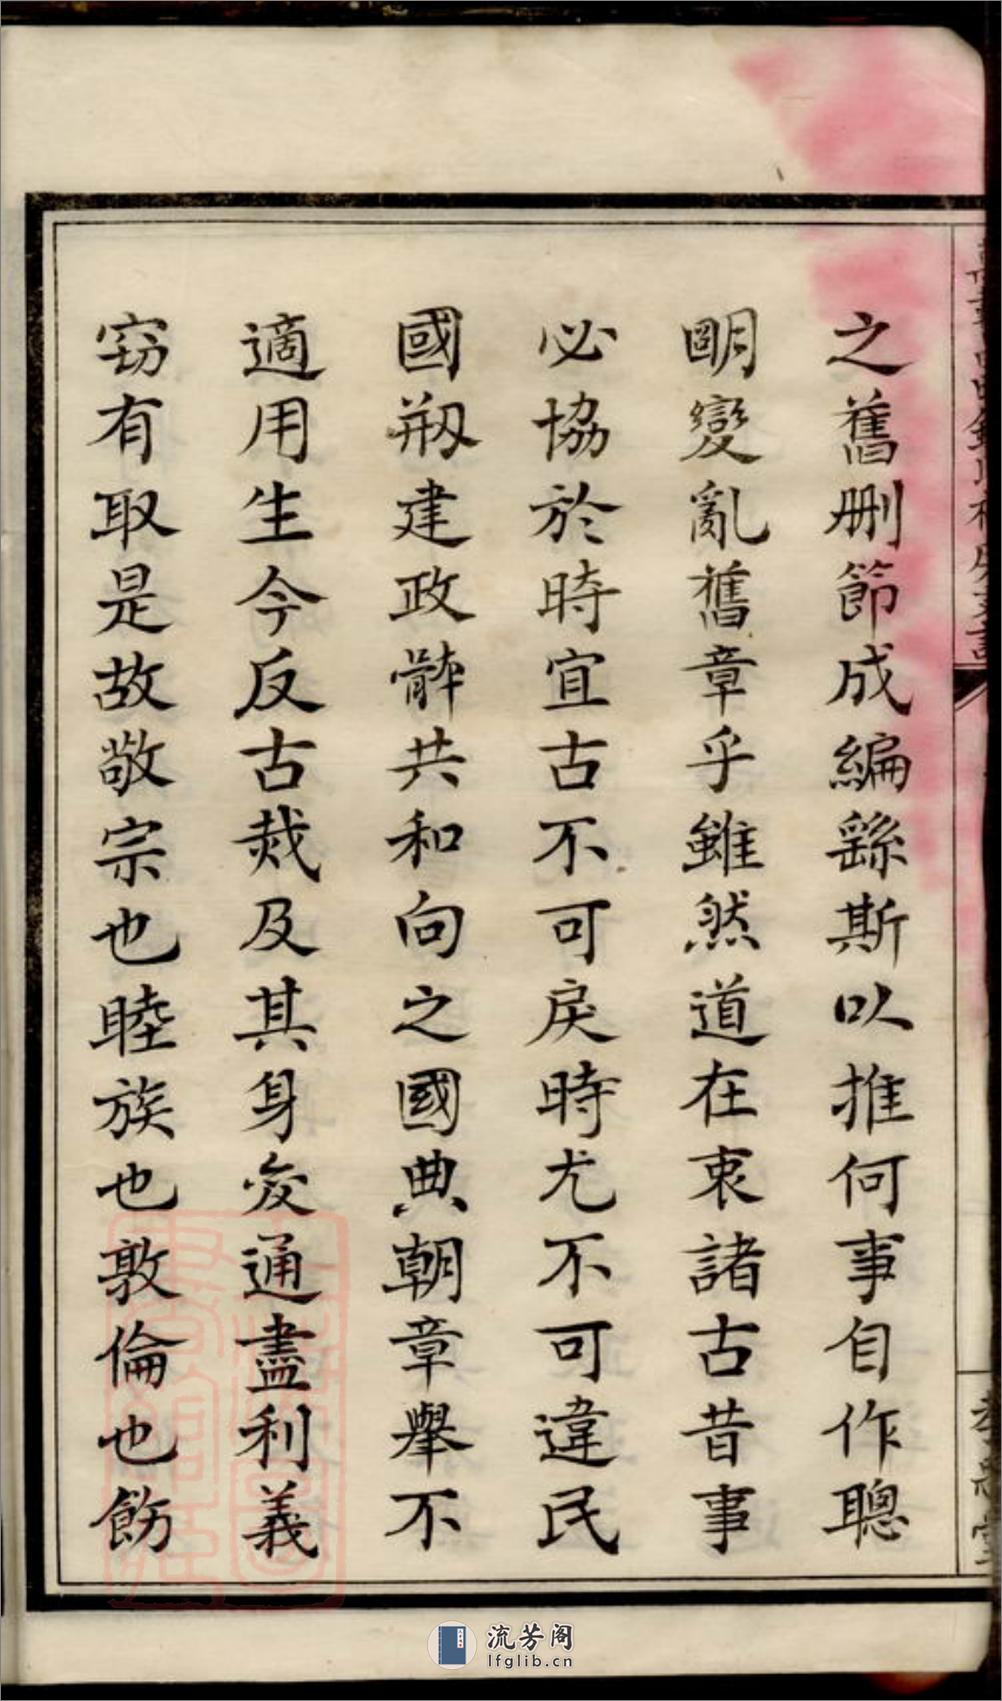 之舊删節成編繇斯以推何事自作聰
明變亂舊章乎雖然道在衷諸古昔事
必協於時宜古不可戾時尤不可違民
國剏建政體共和向之國典朝章舉不
適用生今反古烖及其身變通盡利義
窃有取是故敬宗也睦族也敦倫也飭
流芳阁
lfglib.cn